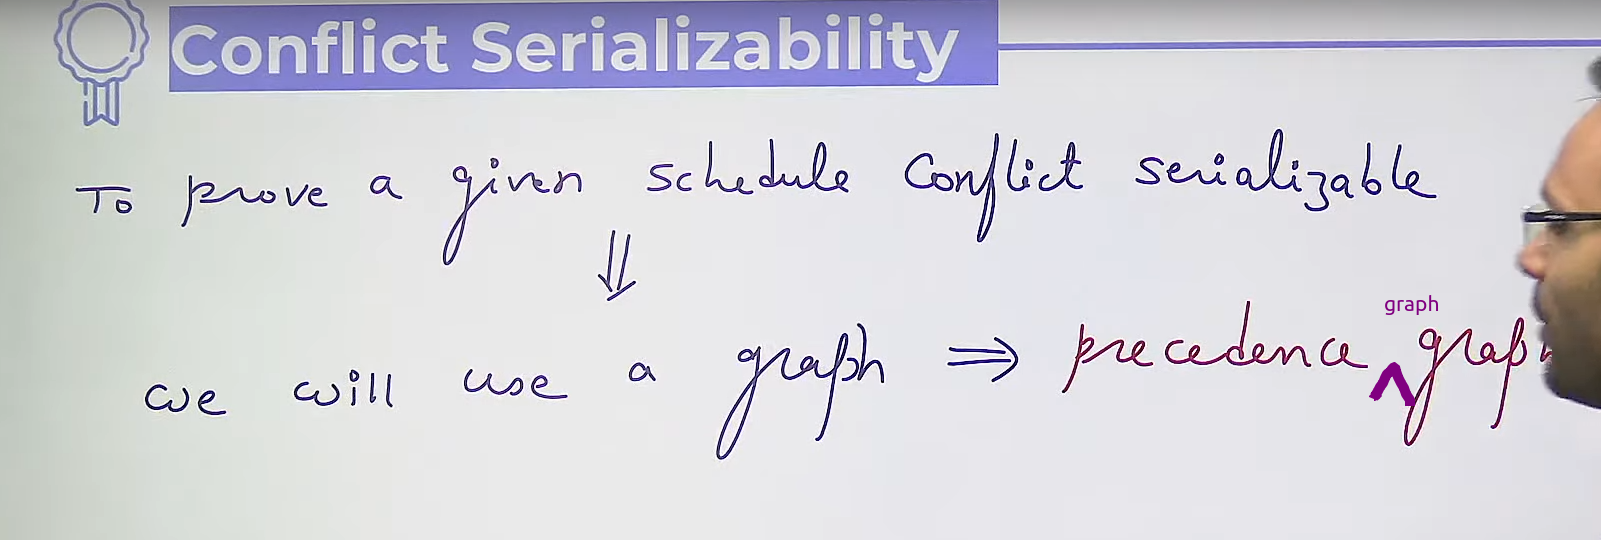 Conflict Serializability
To prove a given schedule Conflict serializable
⇓
graph
we will use a graph ⇒ precedence ^ grap